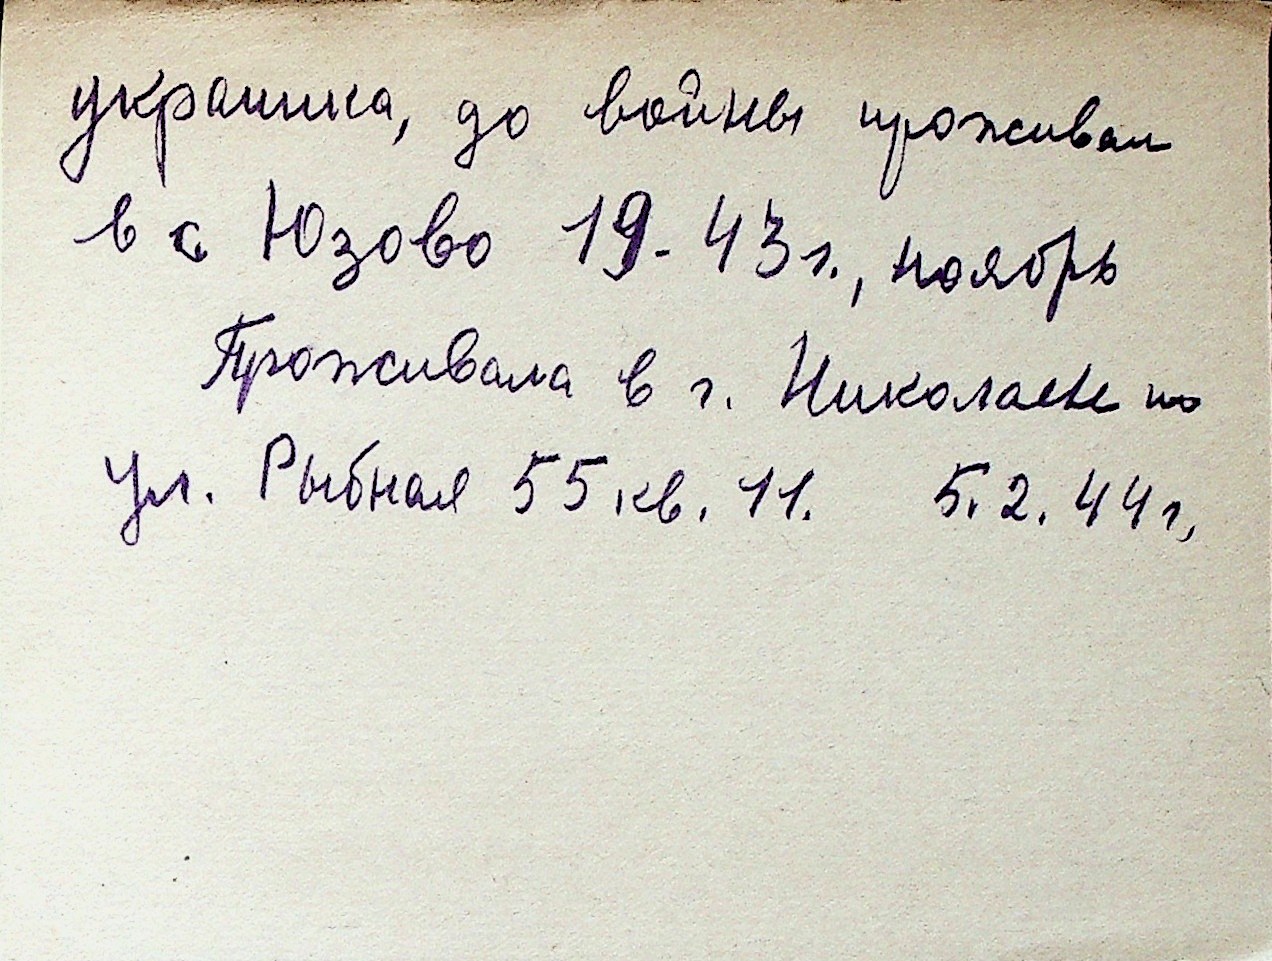 украинка, до войны проживал
в с Юзово 19-43г., ноябрь
Проживала в г. Николаеве по
ул. Рыбная 55 кв. 11. 5.2.44г,